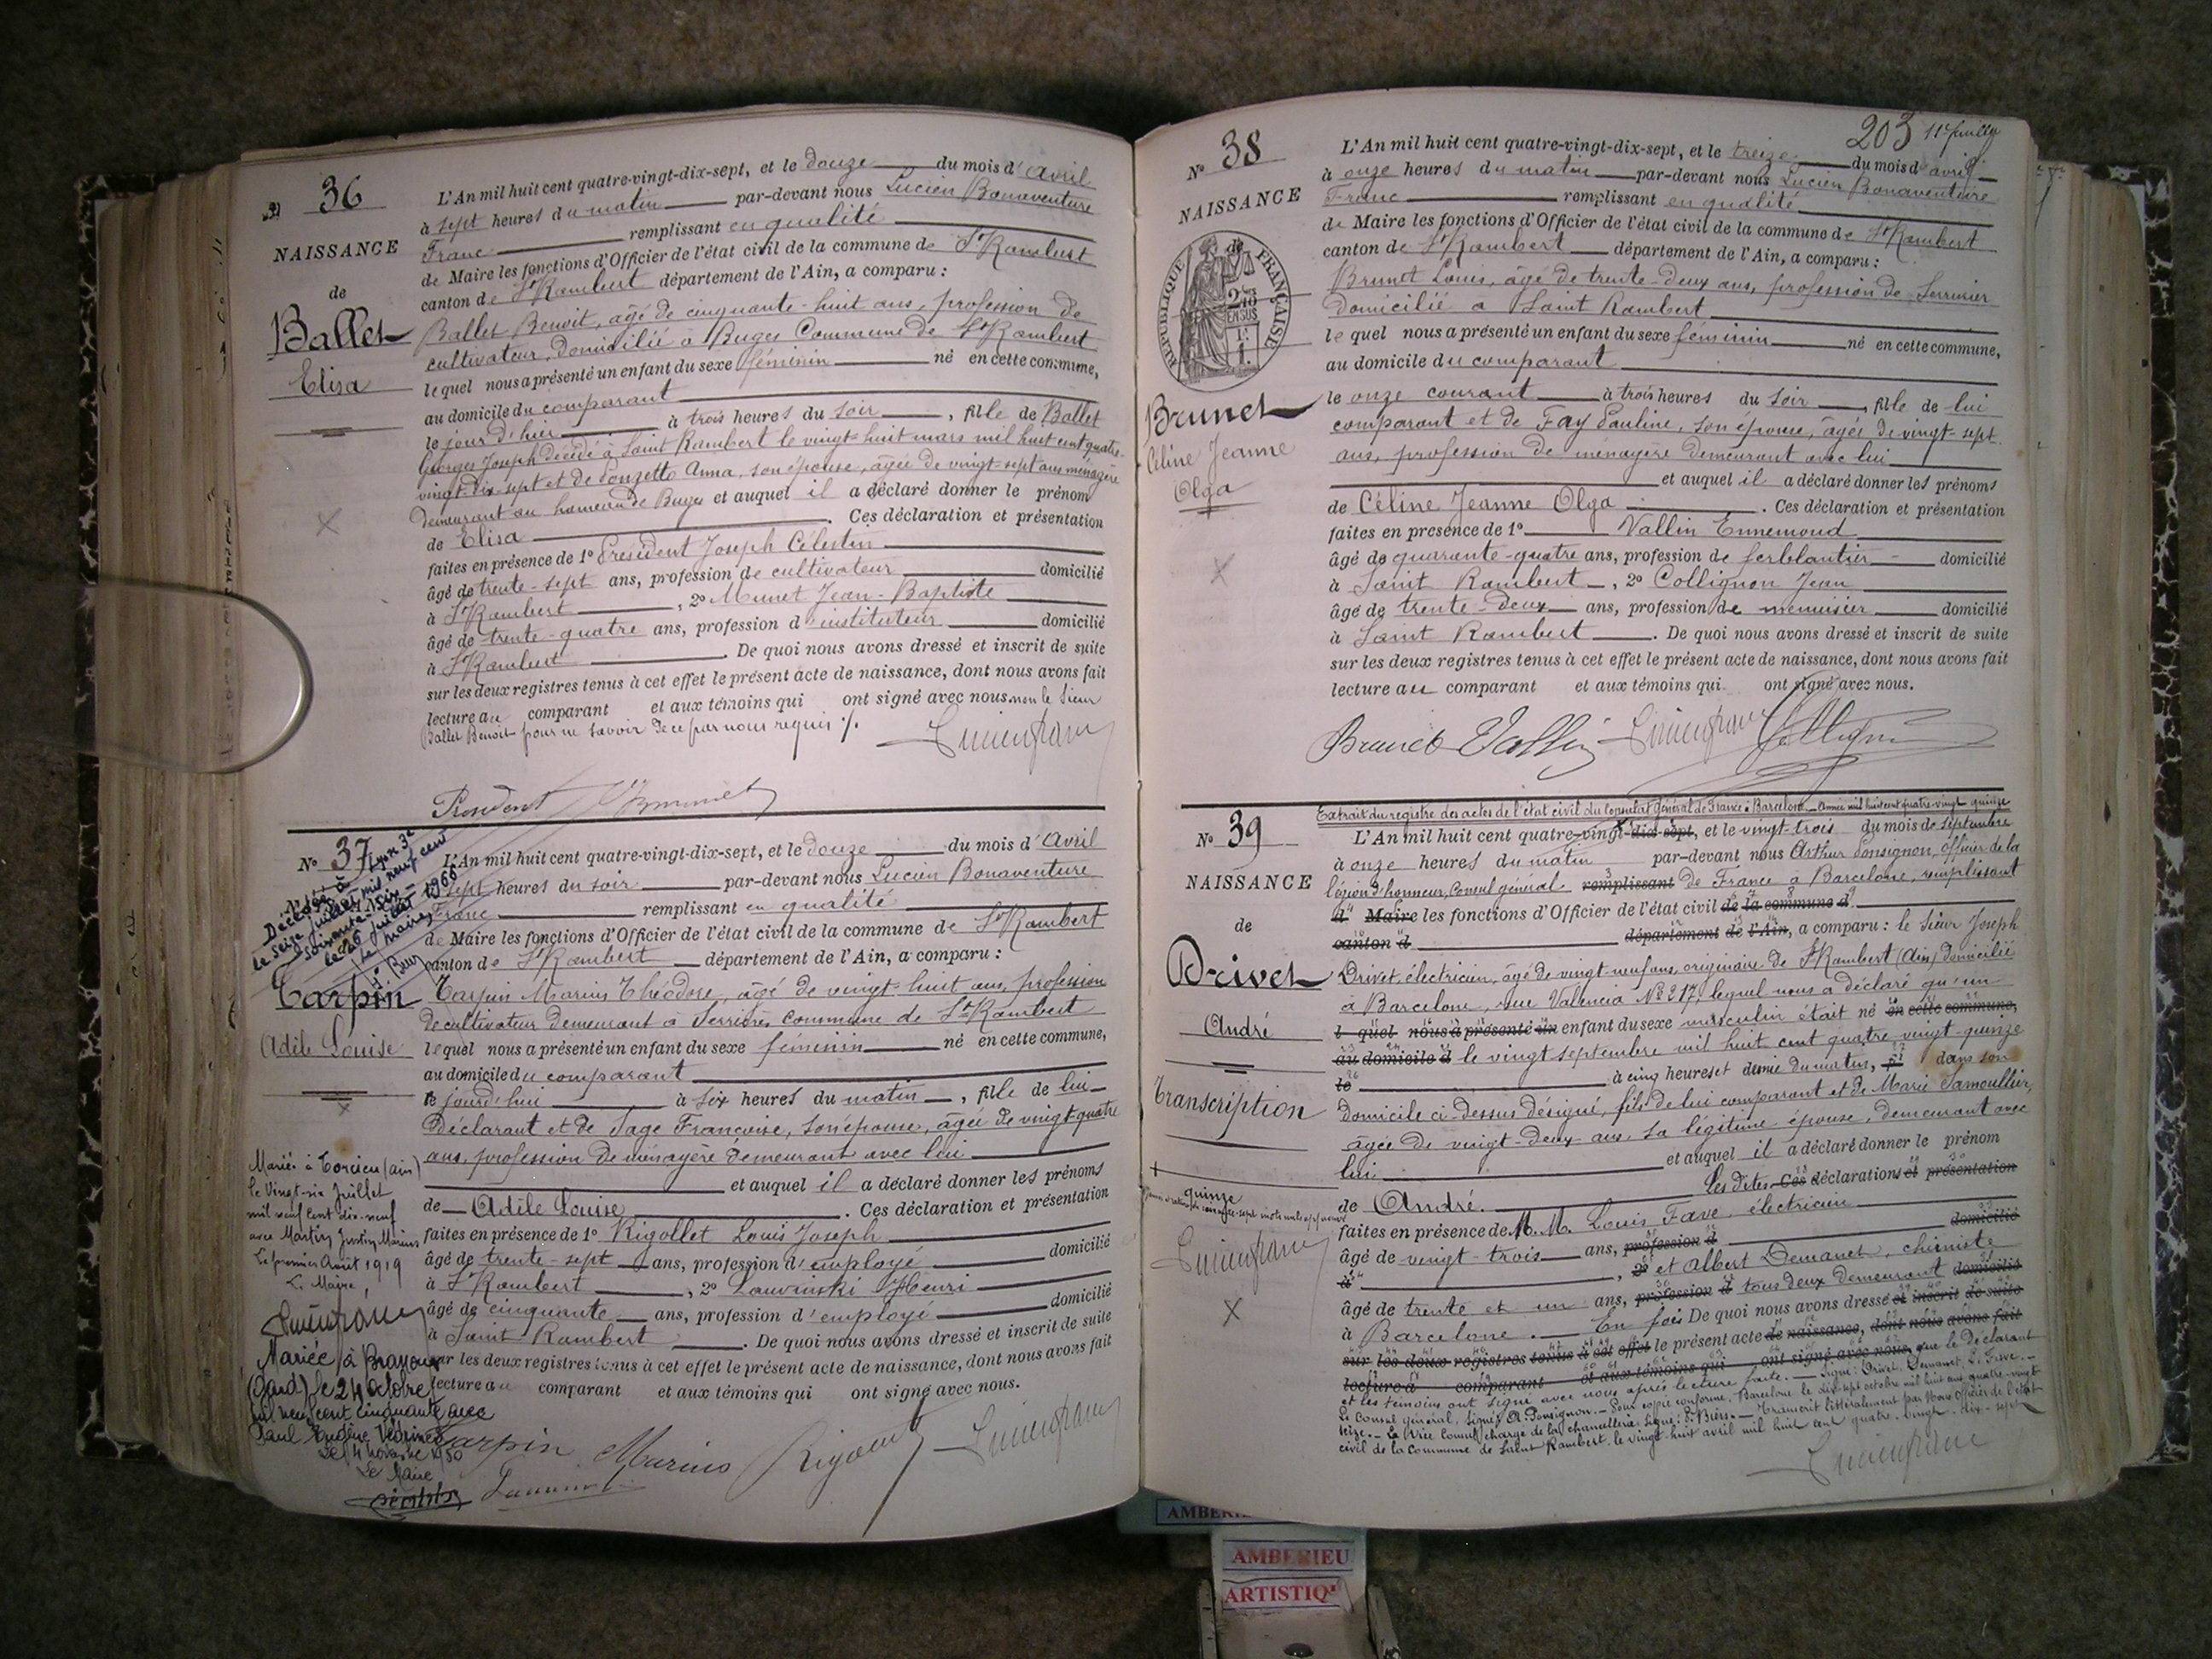 36
NAISSANCE
de
Ballet
Elisa
L'An mil huit cent quatre-vingt-dix-sept, et le douze du mois d'avril
à sept heures du matin par-devant nous Lucien Bonaventure
Franc remplissant en qualité
de Maire les fonctions d'Officier de l'état civil de la commune de St Rambert
canton de St Rambert département de l'Ain, a comparu :
Ballet Benoit, âgé de cinquante-huit ans, profession de
cultivateur, domicilié à Buges Commune de St Rambert
lequel nous a présenté un enfant du sexe féminin né en cette commune,
au domicile du comparant
le jour d'hier à trois heures du soir, fille de Ballet
Georges Joseph décédé à Saint Rambert le vingt-huit mars mil huit cent quatre-
vingt-dix-sept et de Anna, son épouse, âgée de vingt-sept ans ménagère
demeurant au hameau de Buges et auquel il a déclaré donner le prénom
de Elisa. Ces déclaration et présentation
faites en présence de 1º Président Joseph Célestin
âgé de trente-sept ans, profession de cultivateur domicilié
à St Rambert, 2º Munet Jean-Baptiste
âgé de trente-quatre ans, profession d'instituteur domicilié
à St Rambert. De quoi nous avons dressé et inscrit de suite
sur les deux registres tenus à cet effet le présent acte de naissance, dont nous avons fait
lecture au comparant et aux témoins qui ont signé avec nous non le sieur
Ballet Benoit pour ne savoir de ce par nous requis ./.
Lucien franc
Président
Nº 37
NAISSANCE
Décédée à Lyon 3e
le seize juillet mil neuf cent
soixante-six
le 26 juillet 1966
le maire,
Tarpin
Adèle Louise
L'An mil huit cent quatre-vingt-dix-sept, et le douze du mois d'avril
à sept heures du soir par-devant nous Lucien Bonaventure
Franc remplissant en qualité
de Maire les fonctions d'Officier de l'état civil de la commune de St Rambert
canton de St Rambert département de l'Ain, a comparu :
Tarpin Marius Théodore, âgé de vingt-huit ans, profession
de cultivateur demeurant à Serrières commune de St Rambert
lequel nous a présenté un enfant du sexe féminin né en cette commune,
au domicile du comparant
le jourd'hui à six heures du matin, fille de lui
déclarant et de Sage Françoise, son épouse, âgée de vingt-quatre
ans, profession de ménagère demeurant avec lui
et auquel il a déclaré donner les prénoms
de Adèle Louise. Ces déclaration et présentation
faites en présence de 1º Rigollet Louis Joseph
âgé de trente-sept ans, profession d'employé domicilié
à St Rambert, 2º Henri
âgé de cinquante ans, profession d'employé domicilié
à Saint Rambert. De quoi nous avons dressé et inscrit de suite
sur les deux registres tenus à cet effet le présent acte de naissance, dont nous avons fait
lecture au comparant et aux témoins qui ont signé avec nous.
Tarpin Marius Lucien franc
Mariée à Torcieu (ain)
le Vingt-six Juillet
mil neuf cent dix-neuf
avec Martin Justin Marius
Le premier Août 1919
Le Maire,
Lucien franc
Mariée à
(Gard) le 24 Octobre
mil neuf cent cinquante avec
Paul Eugène
Le 4 novembre 1950
Le Maire
203 11e feuille
Nº 38
NAISSANCE
de
RÉPUBLIQUE FRANÇAISE
2/10 EN SUS
Brunet
Céline Jeanne
Olga
L'An mil huit cent quatre-vingt-dix-sept, et le treize du mois d'avril
à onze heures du matin par-devant nous Lucien Bonaventure
Franc remplissant en qualité
de Maire les fonctions d'Officier de l'état civil de la commune de St Rambert
canton de St Rambert département de l'Ain, a comparu :
Brunet Louis, âgé de trente-deux ans, profession de Serrurier
domicilié à Saint Rambert
lequel nous a présenté un enfant du sexe féminin né en cette commune,
au domicile du comparant
le onze courant à trois heures du soir, fille de lui
comparant et de Fay Pauline, son épouse, âgée de vingt-sept
ans, profession de ménagère demeurant avec lui
et auquel il a déclaré donner les prénoms
de Céline Jeanne Olga. Ces déclaration et présentation
faites en présence de 1º Vallin Ennemond
âgé de quarante-quatre ans, profession de ferblantier domicilié
à Saint Rambert, 2º Collignon Jean
âgé de trente-deux ans, profession de menuisier domicilié
à Saint Rambert. De quoi nous avons dressé et inscrit de suite
sur les deux registres tenus à cet effet le présent acte de naissance, dont nous avons fait
lecture au comparant et aux témoins qui ont signé avec nous.
Brunet Vallin Lucien franc Collignon
Extrait du registre des actes de l'état civil du Consulat Général de France à Barcelone. Année mil huit cent quatre-vingt quinze
Nº 39
NAISSANCE
de
Drivet
André
Transcription
quinze
Lucien franc
L'An mil huit cent quatre-vingt-dix-sept, et le vingt-trois du mois de septembre
à onze heures du matin par-devant nous Arthur Ponsignon, officier de la
légion d'honneur, Consul général remplissant de France à Barcelone, remplissant
d Maire les fonctions d'Officier de l'état civil de la commune d
canton d département de l'Ain, a comparu : le Sieur Joseph
Drivet, électricien, âgé de vingt-neuf ans, originaire de St Rambert (Ain) domicilié
à Barcelone, rue Valencia Nº 217, lequel nous a déclaré qu'un
l quel nous a présenté un enfant du sexe masculin était né en cette commune,
au domicile d le vingt septembre mil huit cent quatre vingt quinze
le à cinq heures et demie du matin, fi dans son
domicile ci-dessus désigné, fils de lui comparant et de Marie Lamoullier,
âgée de vingt-deux ans, sa légitime épouse, demeurant avec
lui et auquel il a déclaré donner le prénom
de André. Les dites Ces déclarations et présentation
faites en présence de M. M. Louis Fave, électricien
âgé de vingt-trois ans, profession d domicilié
à , 2º et Albert Demanet, chimiste
âgé de trente et un ans, profession d tous deux demeurant domicilié
à Barcelone. En foi De quoi nous avons dressé et inscrit de suite
sur les deux registres tenus à cet effet le présent acte de naissance, dont nous avons fait
lecture à comparant et aux témoins qui ont signé avec nous, que le Déclarant
et les témoins ont signé avec nous après lecture faite. Signé : Drivet, Demanet, L. Fave.
Le Consul général, signé : A. Ponsignon. Pour copie conforme, Barcelone le dix-sept octobre mil huit cent quatre-vingt
seize. Le Vice Consul chargé de la chancellerie, signé : Transcrit littéralement par Nous officier de l'état
civil de la commune de Saint Rambert le vingt-huit avril mil huit cent quatre-vingt-dix-sept
Lucien franc
AMBERIEU
ARTISTIQ